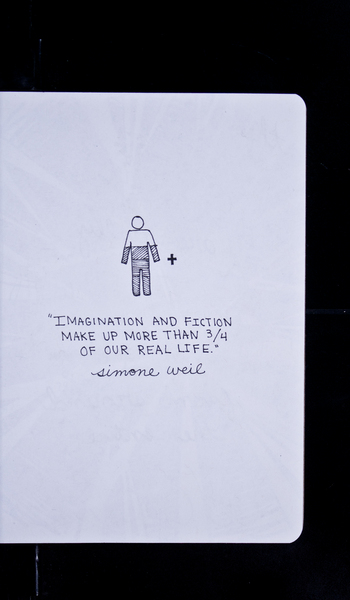 +
"IMAGINATION AND FICTION
MAKE UP MORE THAN 3/4
OF OUR REAL LIFE."
simone weil